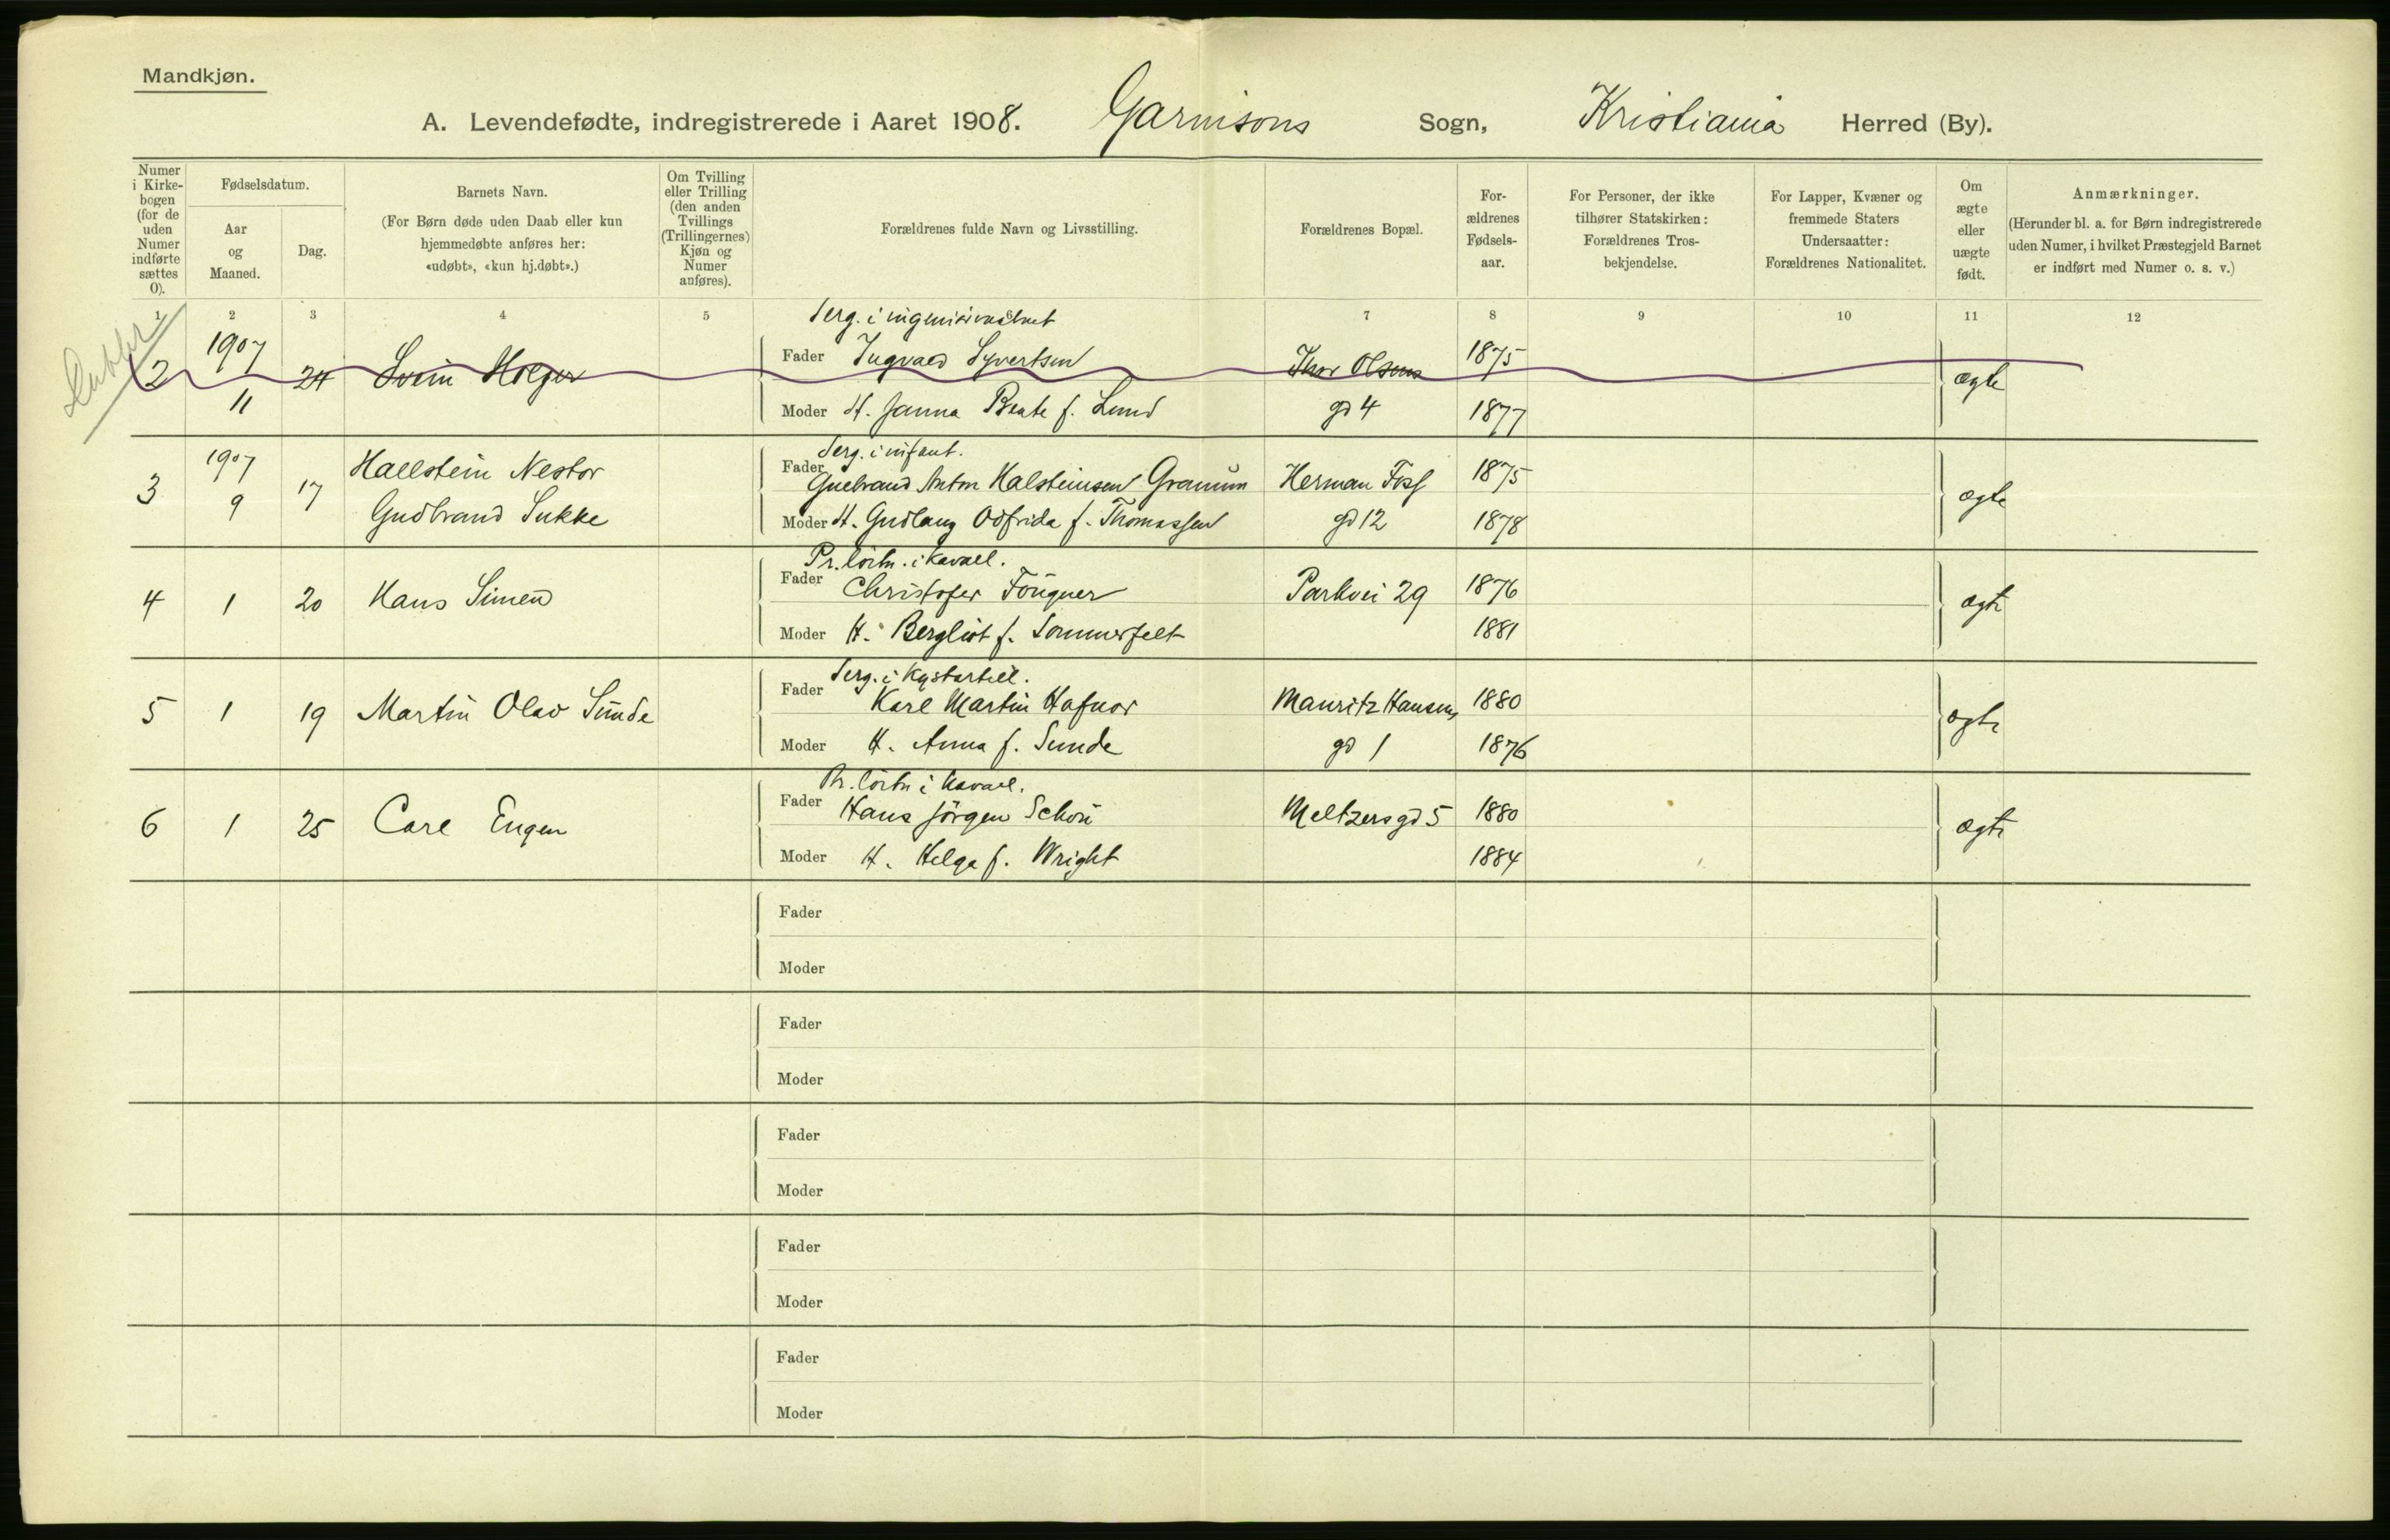 Mandkjøn.
A. Levendefødte, indregistrerede i Aaret 1908. Garnisons Sogn, Kristiania Herred (By).
Numer i Kirkebogen (for de uden Numer indførte sættes 0).
Fødselsdatum.
Aar og Maaned.
Dag.
Barnets Navn.
(For Børn døde uden Daab eller kun hjemmedøbte anføres her: «udøbt», «kun hj.døbt».)
Om Tvilling eller Trilling (den anden Tvillings (Trillingernes) Kjøn og Numer anføres).
Forældrenes fulde Navn og Livsstilling.
Forældrenes Bopæl.
For-ældrenes Fødsels-aar.
For Personer, der ikke tilhører Statskirken: Forældrenes Tros-bekjendelse.
For Lapper, Kvæner og fremmede Staters Undersaatter: Forældrenes Nationalitet.
Om ægte eller uægte født.
Anmærkninger.
(Herunder bl. a. for Børn indregistrerede uden Numer, i hvilket Præstegjeld Barnet er indført med Numer o. s. v.)
1 2 3 4 5 6 7 8 9 10 11 12
Serg. i
2 1907 24 Svein Holger Fader Ingvald Syvertsen Thor Olsens 1875 ægte
11 Moder H. Janna Beate f. Lund gd 4 1877
Serg. i infant.
3 1907 17 Hallstein Nestor Fader Gudbrand Anton Halsteinsen Granum Herman Foss 1875 ægte
9 Gudbrand Sukke Moder H. Gudlaug Odfrida f. Thomassen gd 12 1878
Pr. löitn. i kavall.
4 1 20 Hans Simen Fader Christofer Fougner Parkvei 29 1876 ægte
Moder H. Bergliot f. Sommerfelt 1881
Serg. i Kystartill.
5 1 19 Martin Olav Sunde Fader Karl Martin Hafnor Mauritz Hansens 1880 ægte
Moder H. Anna f. Sunde gd 1 1876
Pr. löitn i kavall.
6 1 25 Carl Eugen Fader Hans Jörgen Schou Meltzersgd 5 1880 ægte
Moder H. Helga f. Wright 1884
Fader
Moder
Fader
Moder
Fader
Moder
Fader
Moder
Fader
Moder